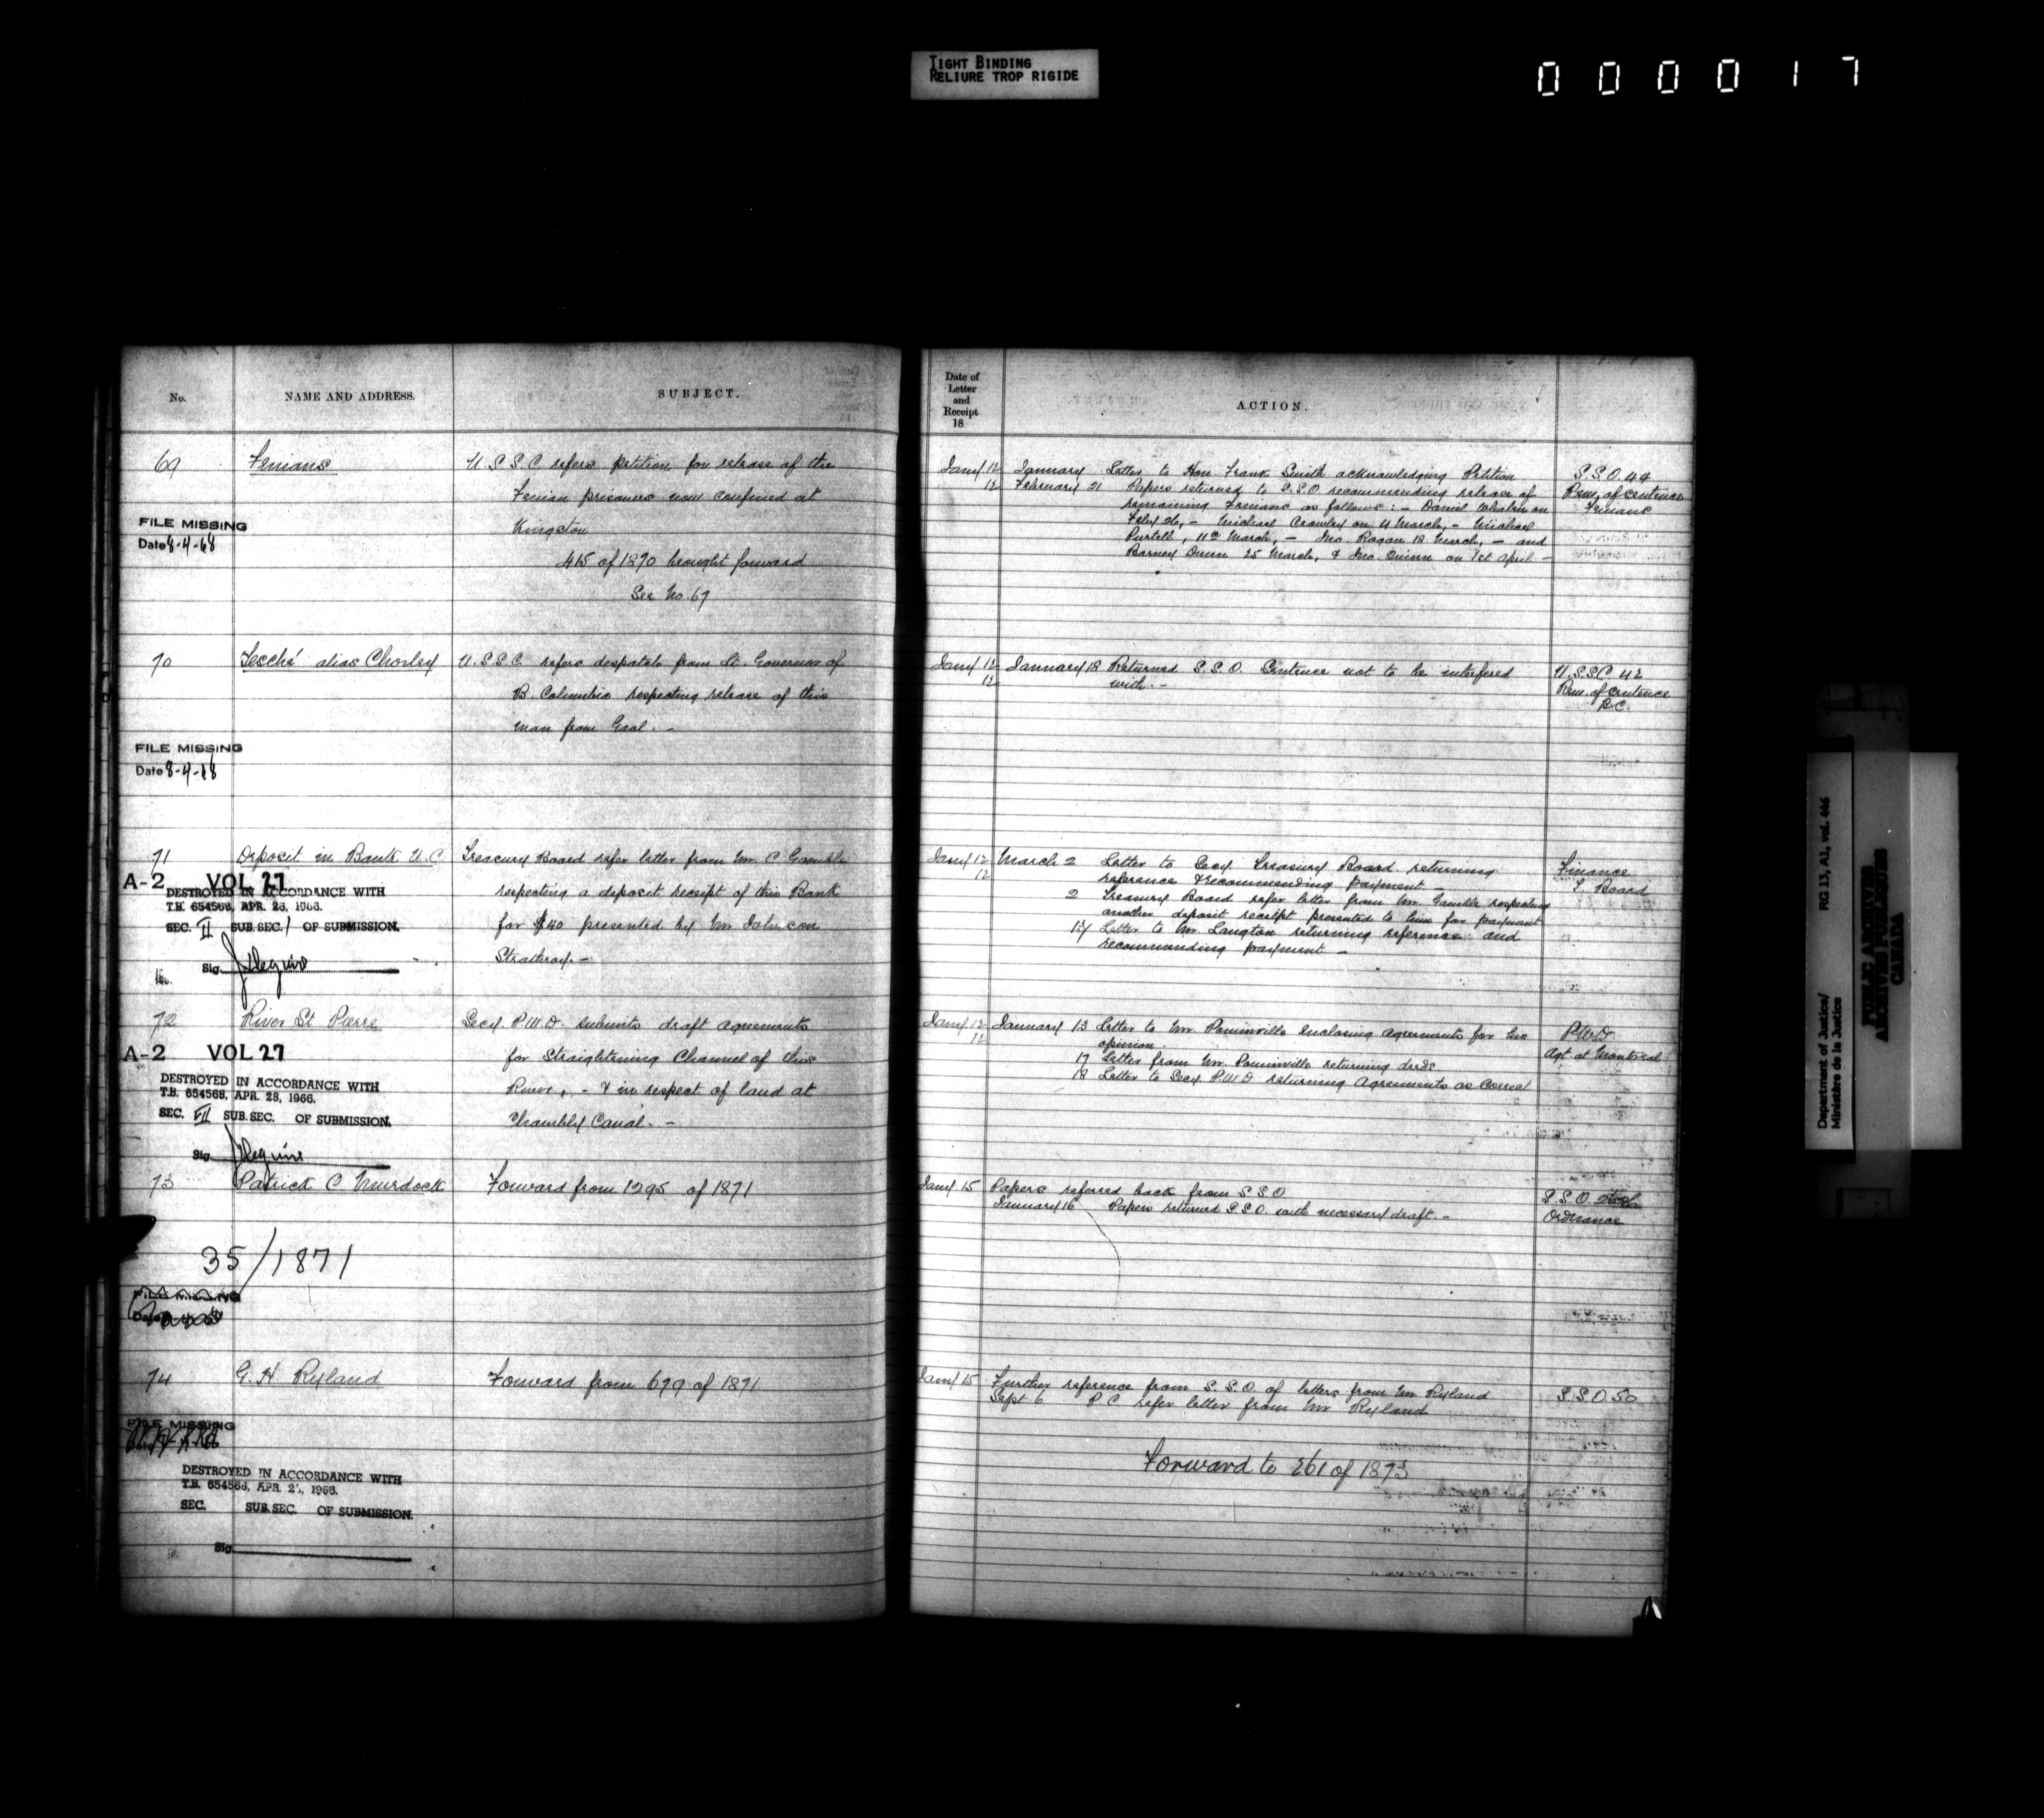 TIGHT BINDING
RELIURE TROP RIGIDE
000017
No.
NAME AND ADDRESS.
SUBJECT.
69
Fenians
U.S.S.C. refers petition for release of the
Fenian prisoners now confined at
Kingston
415 of 1870 brought forward
See No. 67
FILE MISSING
Date 8-4-68
70
alias Chorley
U.S.S.C. refers despatch from Lt. Governor of
B. Columbia respecting release of this
man from Gaol. -
FILE MISSING
Date 8-4-68
71
Deposit in Bank U.C
Treasury Board refer letter from Mr. C Gamble
respecting a deposit receipt of this Bank
for $40 presented by Mr
Strathroy. -
A-2 VOL 27
DESTROYED IN ACCORDANCE WITH
T.B. 654568, APR. 28, 1966.
SEC. II SUB. SEC. 1 OF SUBMISSION.
Sig.
72
River St Pierre
Secy. P.W.D. submits draft agreements
for Straightening Channel of this
River, - & in respect of land at
Chambly Canal. -
A-2 VOL 27
DESTROYED IN ACCORDANCE WITH
T.B. 654568, APR. 28, 1966.
SEC. VII SUB. SEC. OF SUBMISSION.
Sig.
73
Patrick C Murdock
Forward from 1295 of 1871
35/1871
FILE MISSING
74
G. H. Ryland
Forward from 679 of 1871
FILE MISSING
DESTROYED IN ACCORDANCE WITH
T.B. 654568, APR. 28, 1966.
SEC. SUB. SEC. OF SUBMISSION.
Sig.
Date of
Letter
and
Receipt
18
ACTION.
Jany 12
12
January Letter to Hon. Frank Smith acknowledging Petition
February 21 Papers returned to S.S.O recommending release of
remaining Fenians as follows: - Daniel Whalen on
Feby 26, - Michael Crowley on 4 March, - Michael
Purtell, 11th March, - Jno. Rogan 18 March, - and
Barney Dunn 25 March, & Jno. Quinn on 1st April -
S.S.O. 44
Rem. of sentence
Fenians
Jany 12
12
January 18 Returned S.S.O. Sentence not to be interfered
with. -
U.S.S.C 42
Rem. of sentence
B.C.
Jany 12
12
March 2 Letter to Secy. Treasury Board returning
reference & recommending payment -
2 Treasury Board refer letter from Mr. Gamble respecting
another deposit receipt presented to him for payment
Letter to Mr. Langton returning reference and
recommending payment -
Finance
T. Board
Jany 12
12
January 13 Letter to Mr. Pominville enclosing agreements for his
opinion.
17 Letter from Mr. Pominville returning deeds
18 Letter to Secy. P.W.D returning Agreements as Correct
P.W.D.
Agt. at Montreal
Jany 15
Papers referred back from S.S.O
January 16 Papers returned S.S.O. with necessary draft. -
S.S.O.
Ordnance
Jany 15
Further reference from S.S.O. of letters from Mr Ryland
Sept 6 P C refer letter from Mr Ryland
S.S.O 50
Forward to 261 of 1873
Department of Justice/ RG 13, A1, vol. 446
Ministère de la Justice
PUBLIC ARCHIVES
ARCHIVES PUBLIQUES
CANADA